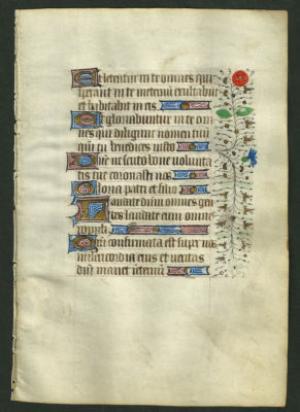 Et letentur in te omnes qui
sperant in te in eternũ exultabũt
et habitabit in eis
Et gloriabuntur in te om
nes qui diligũt nomen tuũ
qm̃ tu benedices iusto
Dñe ut scuto bone volunta
tis tue coronasti nos
Gloria patri et filio
Laudate dñm omnes gen
tes laudate eum omnes
populi
Qm̃ confirmata est super nos
misericordia eius et veritas
dñi manet ĩeternũ